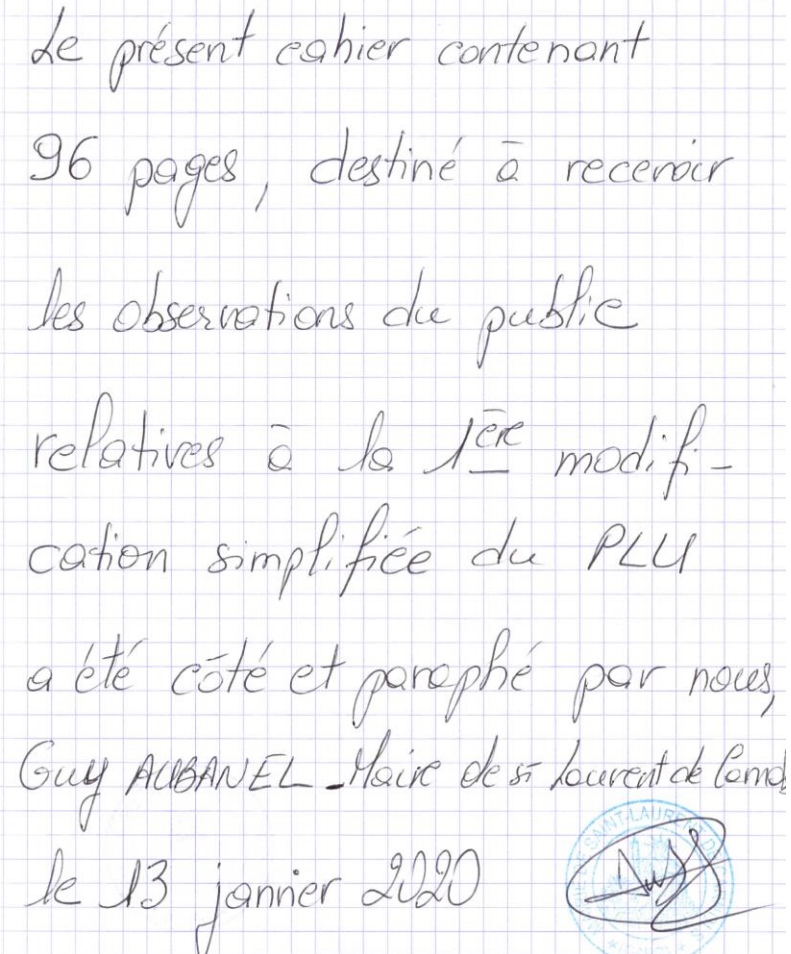 Le présent cahier contenant
96 pages, destiné à recevoir
les observations du public
relatives à la 1ère modifi-
cation simplifiée du PLU
a été côté et paraphé par nous,
Guy AUBANEL - Maire de St Laurent de
le 13 janvier 2020
SAINT-LAURENT